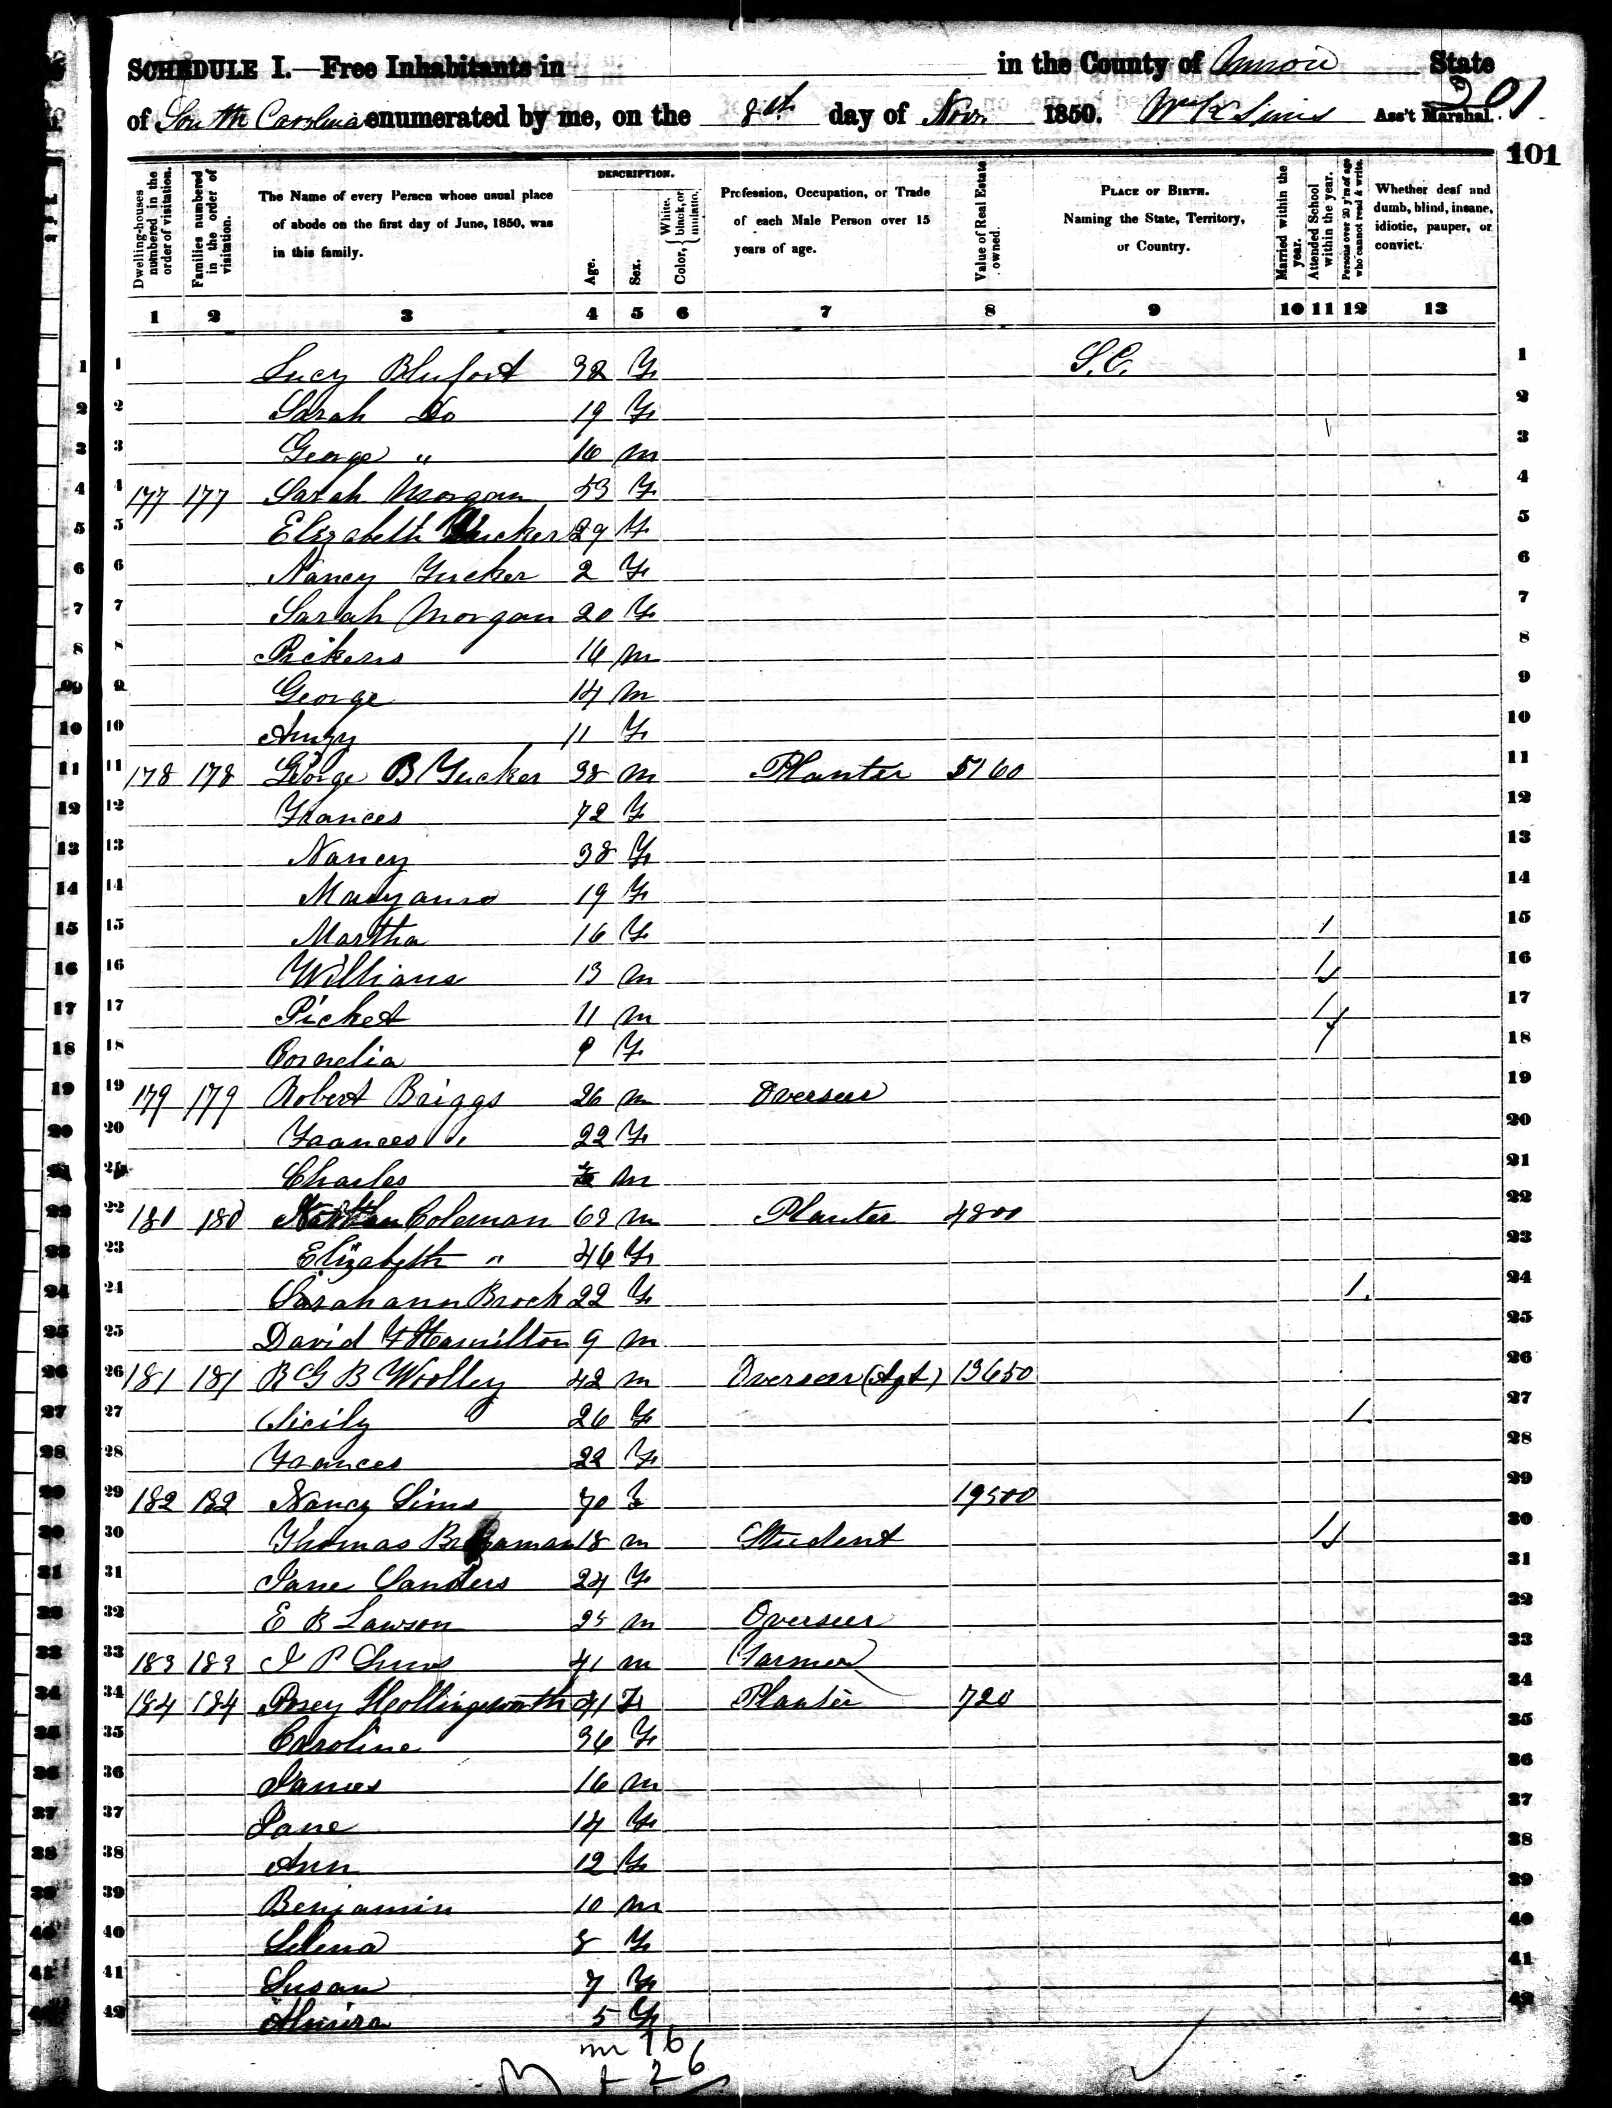 SCHEDULE I.—Free Inhabitants in in the County of Union State
of South Carolina enumerated by me, on the 8th day of Nov. 1850. Wm K Sims Ass't Marshal. 201
101
Dwelling-houses numbered in the order of visitation.
Families numbered in the order of visitation.
The Name of every Person whose usual place of abode on the first day of June, 1850, was in this family.
DESCRIPTION.
Age.
Sex.
Color, { White, black, or mulatto.
Profession, Occupation, or Trade of each Male Person over 15 years of age.
Value of Real Estate owned.
PLACE OF BIRTH. Naming the State, Territory, or Country.
Married within the year.
Attended School within the year.
Persons over 20 y'rs of age who cannot read & write.
Whether deaf and dumb, blind, insane, idiotic, pauper, or convict.
1 2 3 4 5 6 7 8 9 10 11 12 13
1 Lucy Blufort 32 F S.C. 1
2 Sarah Do 19 F 2
3 George " 16 m 3
4 177 177 Sarah Morgan 53 F 4
5 Elizabeth Tucker 29 F 5
6 Nancy Tucker 2 F 6
7 Sarah Morgan 20 F 7
8 Pickens 16 m 8
9 George 14 m 9
10 11 F 10
11 178 178 George B Tucker 38 m Planter 5160 11
12 Frances 72 F 12
13 Nancy 38 F 13
14 Maryann 19 F 14
15 Martha 16 F 1 15
16 William 13 m 1 16
17 Picket 11 m 1 17
18 Cornelia 9 F 1 18
19 179 179 Robert Briggs 26 m Overseer 19
20 Frances " 22 F 20
21 Charles m 21
22 180 180 Coleman 63 m Planter 4800 22
23 Elizabeth " 46 F 23
24 Sarah ann Brock 22 F 1 24
25 David F Hamilton 9 m 25
26 181 181 B G B Woolley 42 m Overseer (Agt) 13650 26
27 Sicily 26 F 1 27
28 Frances 22 F 28
29 182 182 Nancy Sims 70 F 19500 29
30 Thomas 18 m Student 1 30
31 Jane Sanders 24 F 31
32 E B Lawson 25 m Overseer 32
33 183 183 J P Sims 41 m Farmer 33
34 184 184 Posey Hollingsworth 41 F Planter 720 34
35 Caroline 36 F 35
36 James 16 m 36
37 Jane 14 F 37
38 Ann 12 F 38
39 Benjamin 10 m 39
40 Selena 8 F 40
41 Susan 7 F 41
42 Almira 5 F 42
m 16
f 26